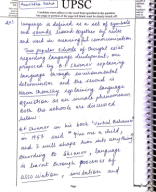 UPSC
language is defined as a set of symbols
and sounds bound together by rules
and used in meaningful communication
Two popular schools of thought exist
regarding language development, one
proposed by B.F Skinner explaining
language through environmental
determinism and the second is
Noam Chomsky explaining language
both the authors are discussed
below
B.F Skinner in his book "Verbal Behavior"
in 1957 said " give me a child,
and I will shape him into anything
According to Skinner, language
is learnt through processes of
association, imitation and